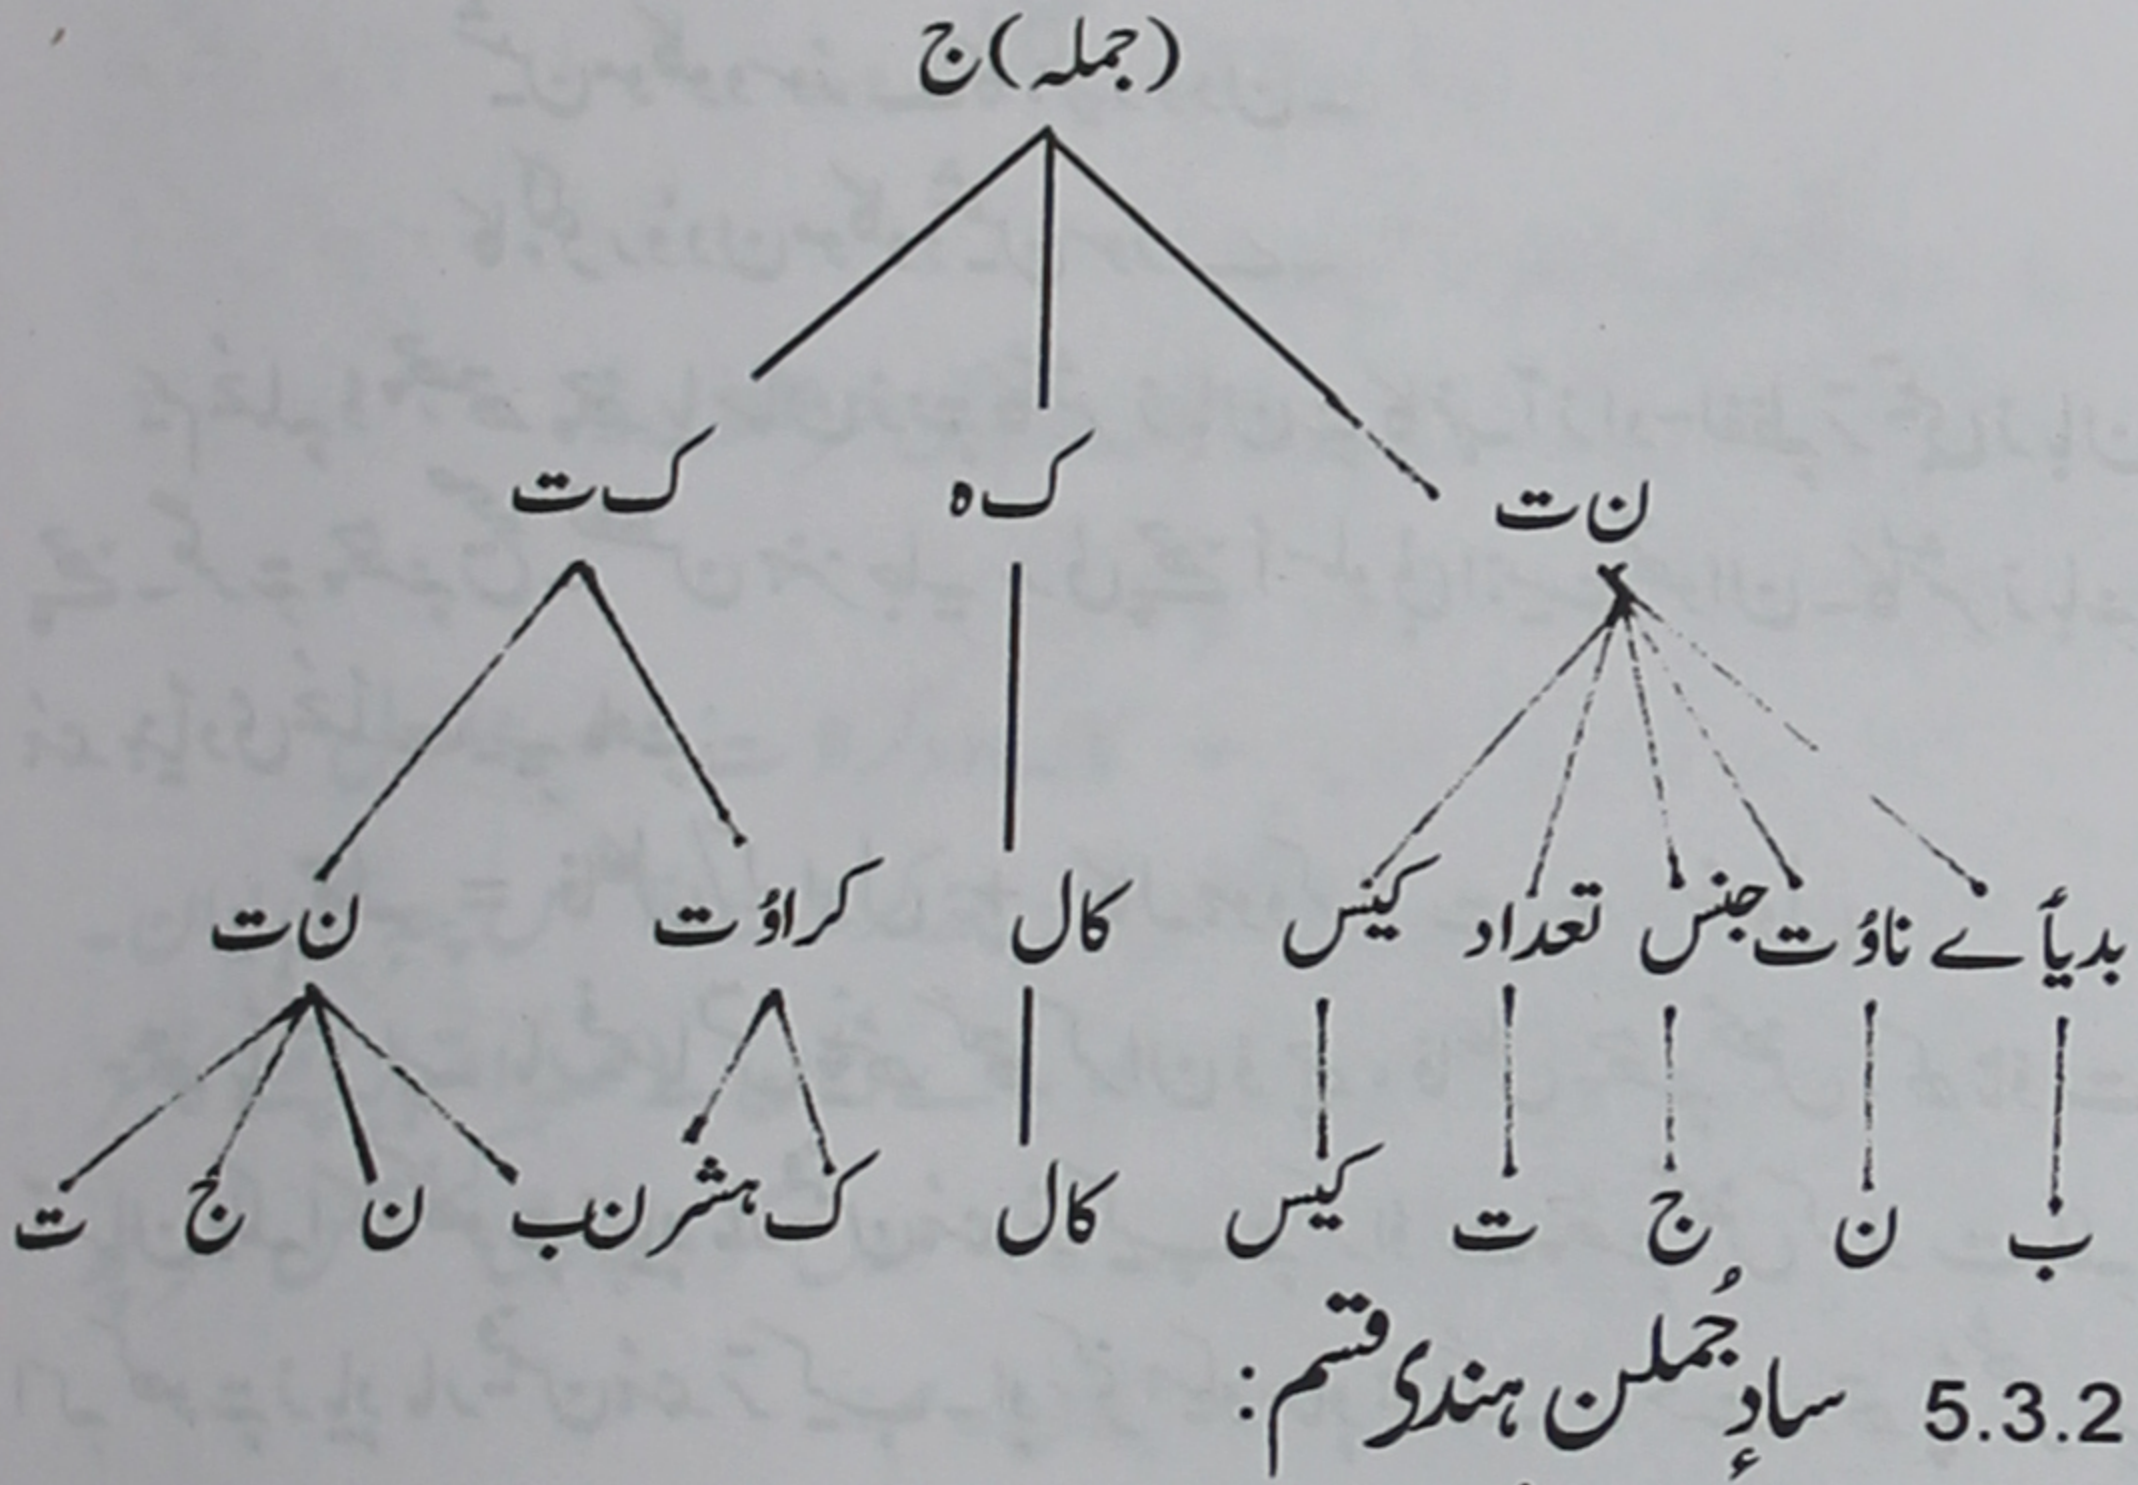 (جملہ) ج
ن ت ک ہ ک ت
بدیأے ناوٗت جنس تعداد کیٚس کال کراوٗت ن ت
ب ن ج ت کیس کال ک ہشر ن ب ن ج ت
5.3.2 سادٕ جُملن ہندی قسم: